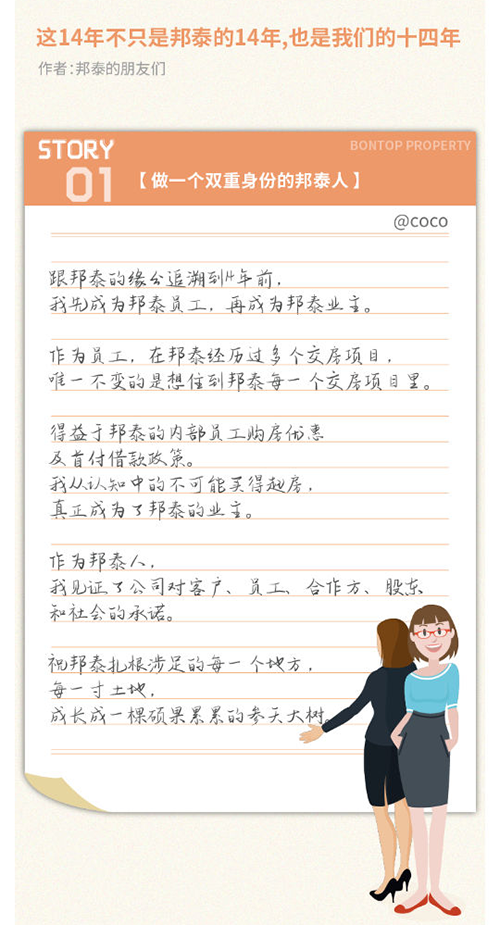 这14年不只是邦泰的14年,也是我们的十四年
作者:邦泰的朋友们
STORY
01
BONTOP PROPERTY
【 做一个双重身份的邦泰人 】
@coco
跟邦泰的缘分追溯到14年前，
我先成为邦泰员工，再成为邦泰业主。
作为员工，在邦泰经历过多个交房项目，
唯一不变的是想住到邦泰每一个交房项目里。
得益于邦泰的内部员工购房优惠
及首付借款政策。
我从认知中的不可能买得起房，
真正成为了邦泰的业主。
作为邦泰人，
我见证了公司对客户、员工、合作方、股东
和社会的承诺。
祝邦泰扎根涉足的每一个地方，
每一寸土地，
成长成一棵硕果累累的参天大树。